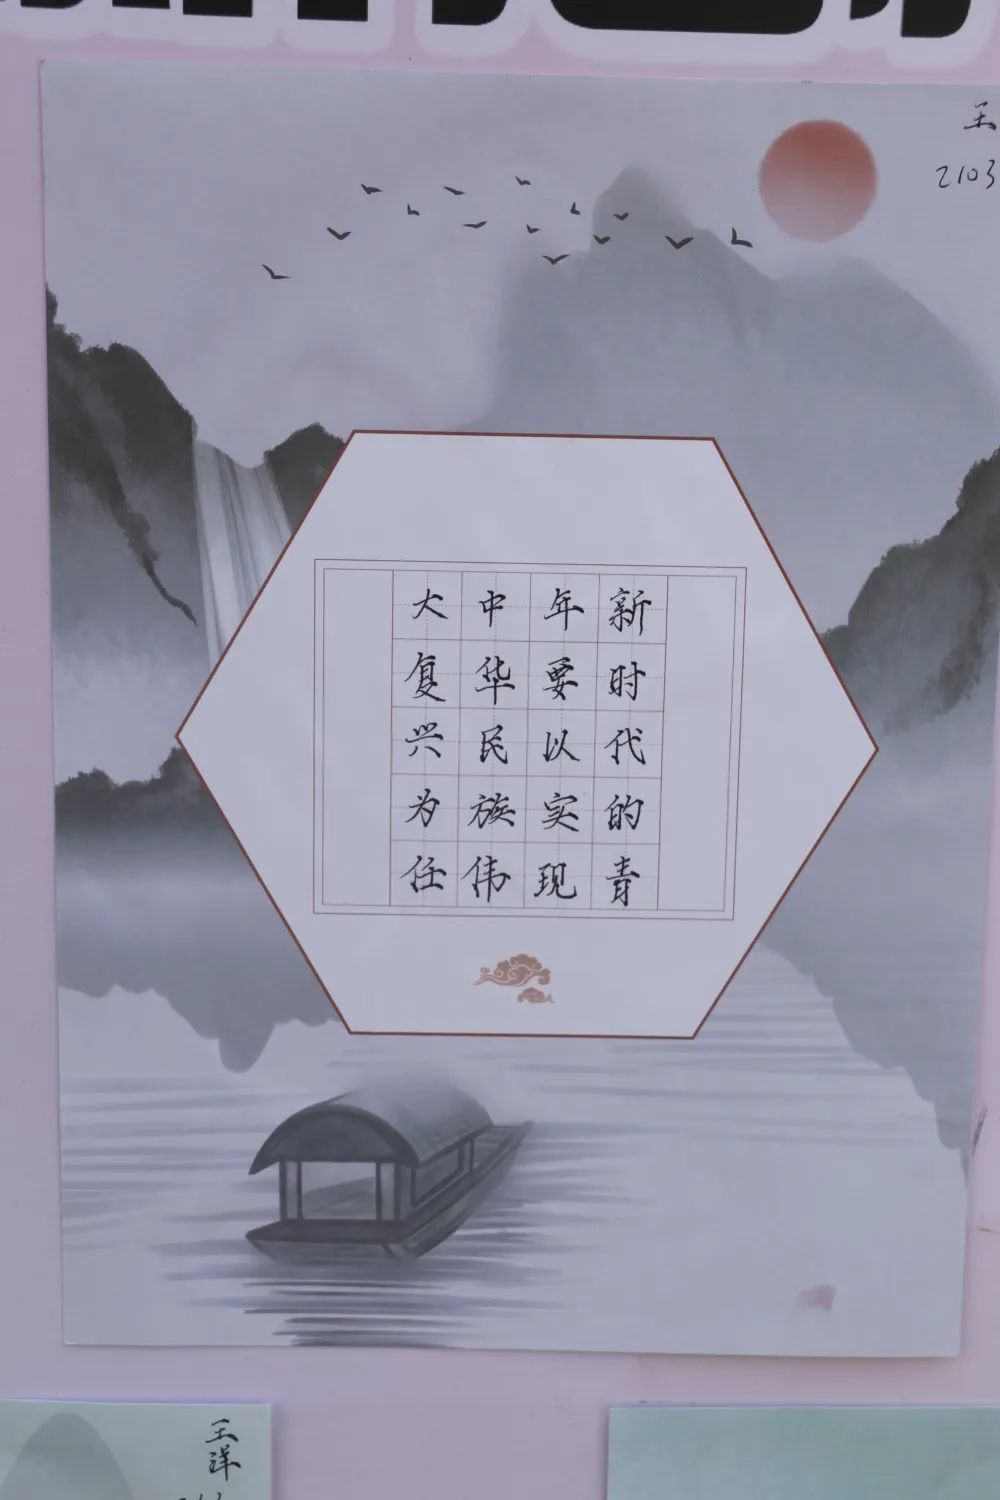 新时代的青
年要以实现
中华民族伟
大复兴为任
王
2103
王洋